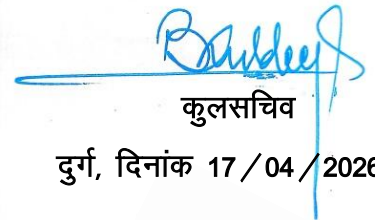 कुलसचिव
दुर्ग, दिनांक 17/04/2026